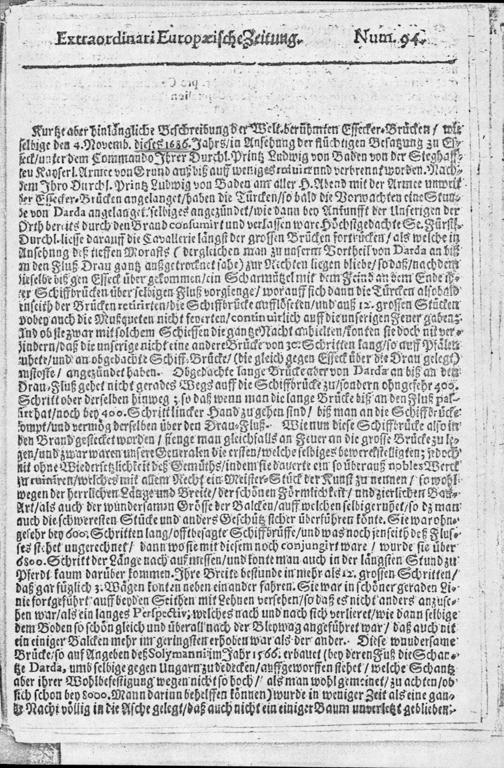 Extraordinari Europæische Zeitung. Num. 94.
Kurtze aber hinlängliche Beschreibung der Welt-berühmten Essecker-Brücken / wie
selbige den 4. Novemb. dieses 1686. Jahrs / in Ansehung der flüchtigen Besatzung zu Es-
seck / unter dem Commando Ihrer Durchl. Printz Ludwig von Baden von der Sieghaff-
ten Kayserl. Armee von Grund auß biß auff weniges ruinirt und verbrennt worden. Nach-
dem Ihro Durchl. Printz Ludwig von Baden am aller H. Abend mit der Armee unweit
der Essecker-Brücken angelanget / haben die Türcken / so bald die Vorwachten eine Stun-
de von Darda angelanget / selbiges angezündet / wie dann bey Ankunfft der Unserigen der
Orth bereits durch den Brand consumirt und verlassen ware Höchstgedachte Se. Fürstl.
Durchl. liesse darauff die Cavallerie längst der grossen Brücken fortrucken / als welche in
Ansehung deß tieffen Morasts ( dergleichen man zu unserm Vortheil von Darda an biß
an den Fluß Drau gantz außgetrocknet sahe) zur Rechten liegen bliebe / so daß / nachdem
dieselbe biß gen Esseck über gekommen / ein Scharmützel mit dem Feind an dem Ende
der Schiffbrücken über selbigen Fluß vorgienge / worauff sich dann die Türcken alsobald
jenseith der Brücken retirirten / die Schiffbrücke aufflöseten / und auß 12. grossen Stücken
wobey auch die Mußqueten nicht feyerten / continuirlich auff die unserigen Feuer gaben.
Und ob sie zwar mit solchem Schiessen die gantze Nacht anhielten / konten sie doch nit ver-
hindern / daß die unserige nicht eine andere Brücke von 30. Schritten lang / so auff Pfälen
ruhete / und an obgedachte Schiff-Brücke / (die gleich gegen Esseck über die Drau gelegt)
anstosste / angezündet haben. Obgedachte lange Brücke aber von Darda an biß an den
Drau-Fluß gehet nicht gerades Wegs auff die Schiffbrücke zu / sondern ohngefehr 400.
Schritt ober derselben hinweg ; so daß wenn man die lange Brücke biß an den Fluß paß-
irt hat / noch bey 400. Schritt lincker Hand zu gehen sind / biß man an die Schiffbrücke
kompt / und vermög derselben über den Drau-Fluß. Wie nun diese Schiffbrücke also in
den Brand gestecket worden / fienge man gleichfalls an Feuer an die grosse Brücke zu le-
gen / und zwar waren unsere Generalen die ersten / welche selbiges bewerckstelligten ; jedoch
nit ohne Wiedersetzlichkeit deß Gemüths / indem sie dauerte ein so überauß nobles Werck
zu ruiniren / welches mit allem Recht ein Meister-Stück der Kunst zu nennen / so wohl
wegen der herrlichen Länge und Breite / der schönen Förmlichkeit / und zierlichen Bau-
Art / als auch der wundersamen Grösse der Balcken / auff welchen selbige ruhet / so daß man
auch die schweresten Stücke und anders Geschütz sicher überführen konte. Sie war ohn-
gefehr bey 600. Schritten lang / offtbesagte Schiffbrücke / und was noch jenseith deß Flus-
ses stehet ungerechnet / dann wo sie mit diesem noch conjungirt ware / wurde sie über
6500. Schritt der Länge nach außmessen / und konte man auch in der längsten Stund zu
Pferdt kaum darüber kommen. Ihre Breite bestunde in mehr als 12. grossen Schritten /
daß gar füglich 3. Wägen konten neben einander fahren. Sie war in schöner geraden Li-
nie fortgeführt / auff beyden Seithen mit Lehnen versehen / so daß es nicht anders anzuse-
hen war / als ein langes Perspectiv ; welches nach und nach sich verlieret / wie dann selbige
dem Boden so schön gleich und überall nach der Bleywag angeführet war / daß auch nit
ein einiger Balcken mehr im geringsten erhoben war als der ander. Diese wundersame
Brücke / so auß Angeben deß Solymanni im Jahr 1566. erbauet (bey deren Fuß die Schan-
tze Darda, umb selbige gegen Ungarn zu bedecken / auffgeworffen stehet / welche Schantz
aber ihrer Wohlbefestigung wegen nicht so hoch / als man wohl gemeinet / zu achten / ob
sich schon bey 8000. Mann darinn behelffen können) wurde in weniger Zeit als eine gan-
tze Nacht völlig in die Asche gelegt / daß auch nicht ein einiger Baum unverletzt geblieben.